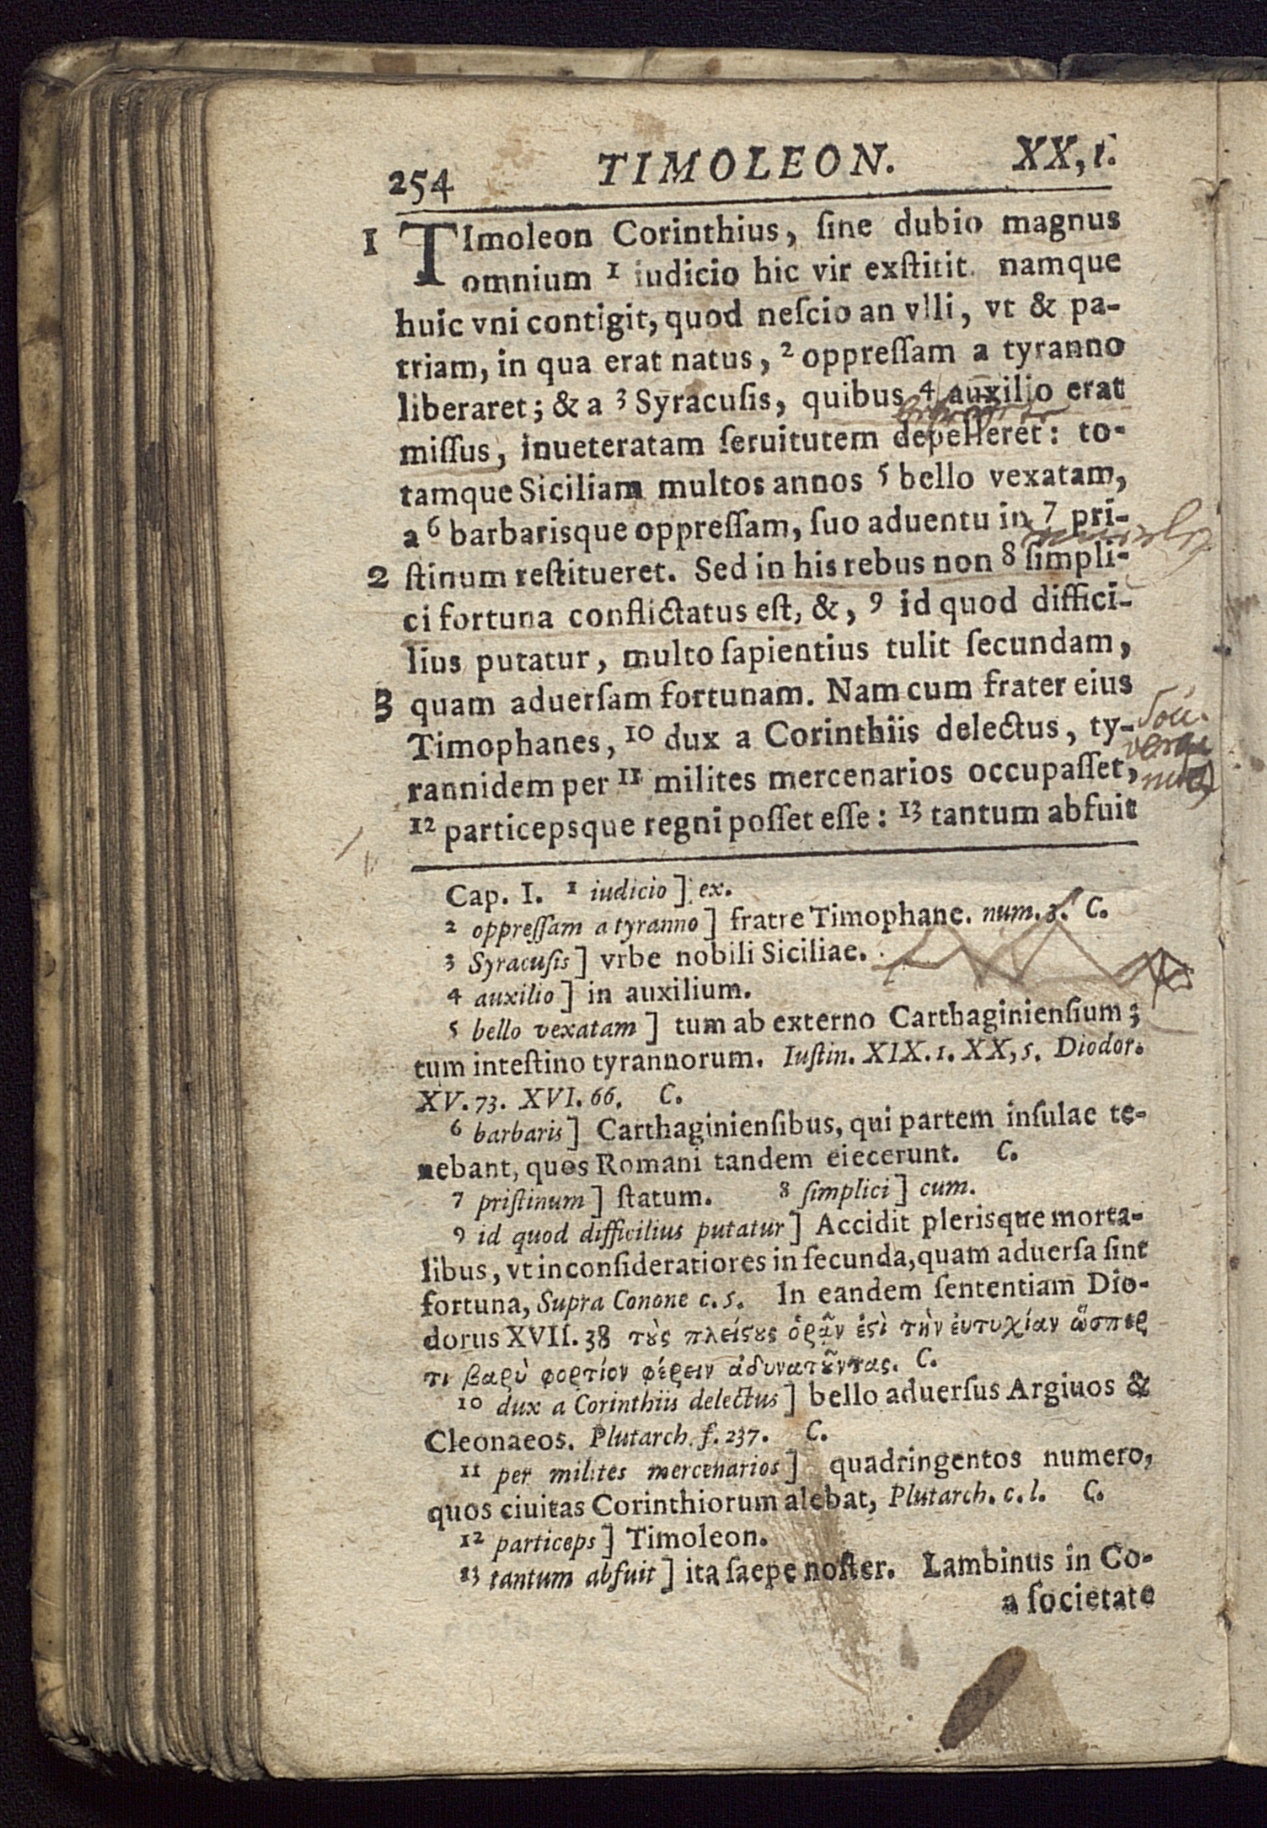 254 TIMOLEON. XX, 1.
1 TImoleon Corinthius, ſine dubio magnus
omnium 1 iudicio hic vir exſtitit. namque
huic vni contigit, quod neſcio an vlli, vt & pa-
triam, in qua erat natus, 2 oppreſſam a tyranno
liberaret; & a 3 Syracuſis, quibus 4 auxilio erat
miſſus, inueteratam ſeruitutem depelleret: to-
tamque Siciliam multos annos 5 bello vexatam,
a 6 barbarisque oppreſſam, ſuo aduentu in 7 pri-
2 ſtinum reſtitueret. Sed in his rebus non 8 ſimpli-
ci fortuna conflictatus eſt, &, 9 id quod diffici-
lius putatur, multo ſapientius tulit ſecundam,
3 quam aduerſam fortunam. Nam cum frater eius
Timophanes, 10 dux a Corinthiis delectus, ty-
rannidem per 11 milites mercenarios occupaſſet,
12 particepsque regni poſſet eſſe: 13 tantum abfuit
Cap. I. 1 iudicio] ex.
2 oppreſſam a tyranno] fratre Timophane. num. 3. C.
3 Syracuſis] vrbe nobili Siciliae.
4 auxilio] in auxilium.
5 bello vexatam] tum ab externo Carthaginienſium;
tum inteſtino tyrannorum. Iuſtin. XIX. 1. XX, 5. Diodor.
XV. 73. XVI. 66. C.
6 barbaris] Carthaginienſibus, qui partem inſulae te-
nebant, quos Romani tandem eiecerunt. C.
7 priſtinum] ſtatum. 8 ſimplici] cum.
9 id quod difficilius putatur] Accidit plerisque morta-
libus, vt inconſideratiores in ſecunda, quam aduerſa ſint
fortuna, Supra Conone c. 5. In eandem ſententiam Dio-
dorus XVII. 38 τȣ̀ς πλείϛȣς ὁρᾷν ἐϛὶ τὴν ἐυτυχίαν ὥσπερ
τι βαρὺ φορτίον φέρειν ἀδυνατȣ͂ντας. C.
10 dux a Corinthiis delectus] bello aduerſus Argiuos &
Cleonaeos. Plutarch. f. 237. C.
11 per milites mercenarios] quadringentos numero,
quos ciuitas Corinthiorum alebat, Plutarch. c. l. C.
12 particeps] Timoleon.
13 tantum abfuit] ita ſaepe noſter. Lambinus in Co-
a ſocietate